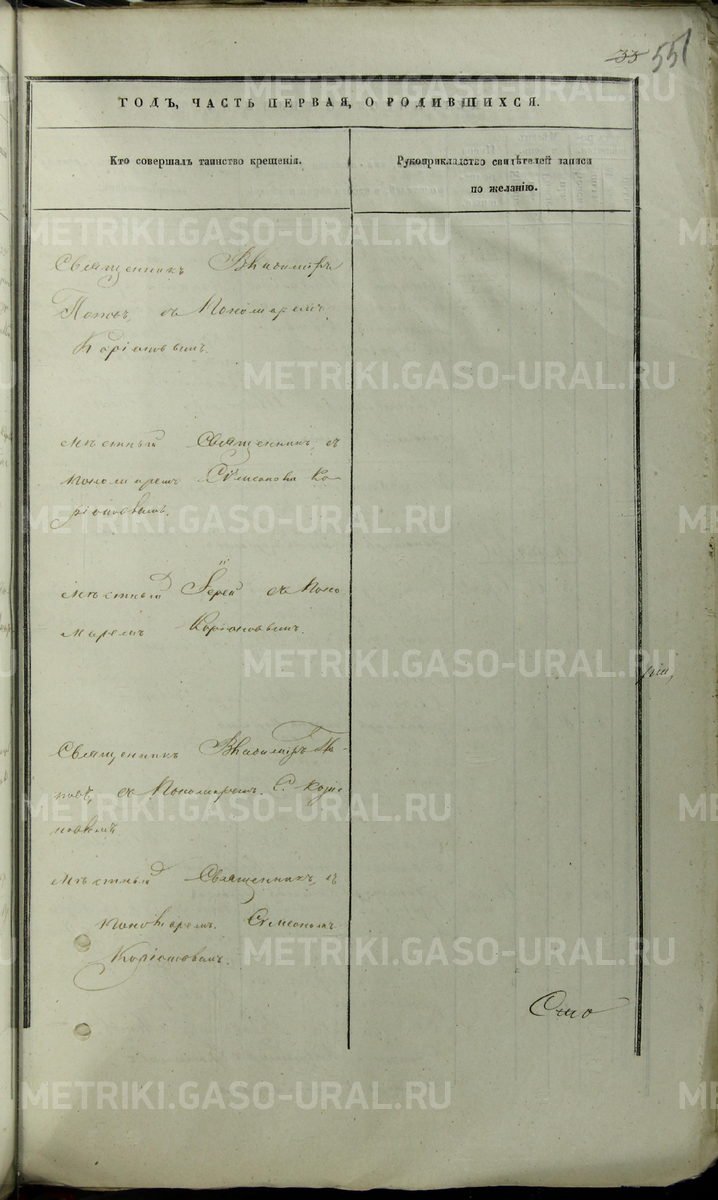 33 551
ГОДЪ, ЧАСТЬ ПЕРВАЯ, О РОДИВШИХСЯ.
Кто совершалъ таинство крещенія.
Рукоприкладство свидѣтелей записи
по желанію.
Священникъ Владиміръ
Поповъ, съ Пономаремъ
Каріоновымъ.
Мѣстный Священникъ, съ
пономаремъ Ка-
ріоновымъ.
Мѣстный Іерей съ Поно
маремъ Каріоновымъ.
Священникъ Владиміръ По-
повъ, съ Пономаремъ. С. Каріо
новымъ
Мѣстный Священникъ, съ
пономаремъ. Симеономъ
Каріоновымъ.
METRIKI.GASO-URAL.RU